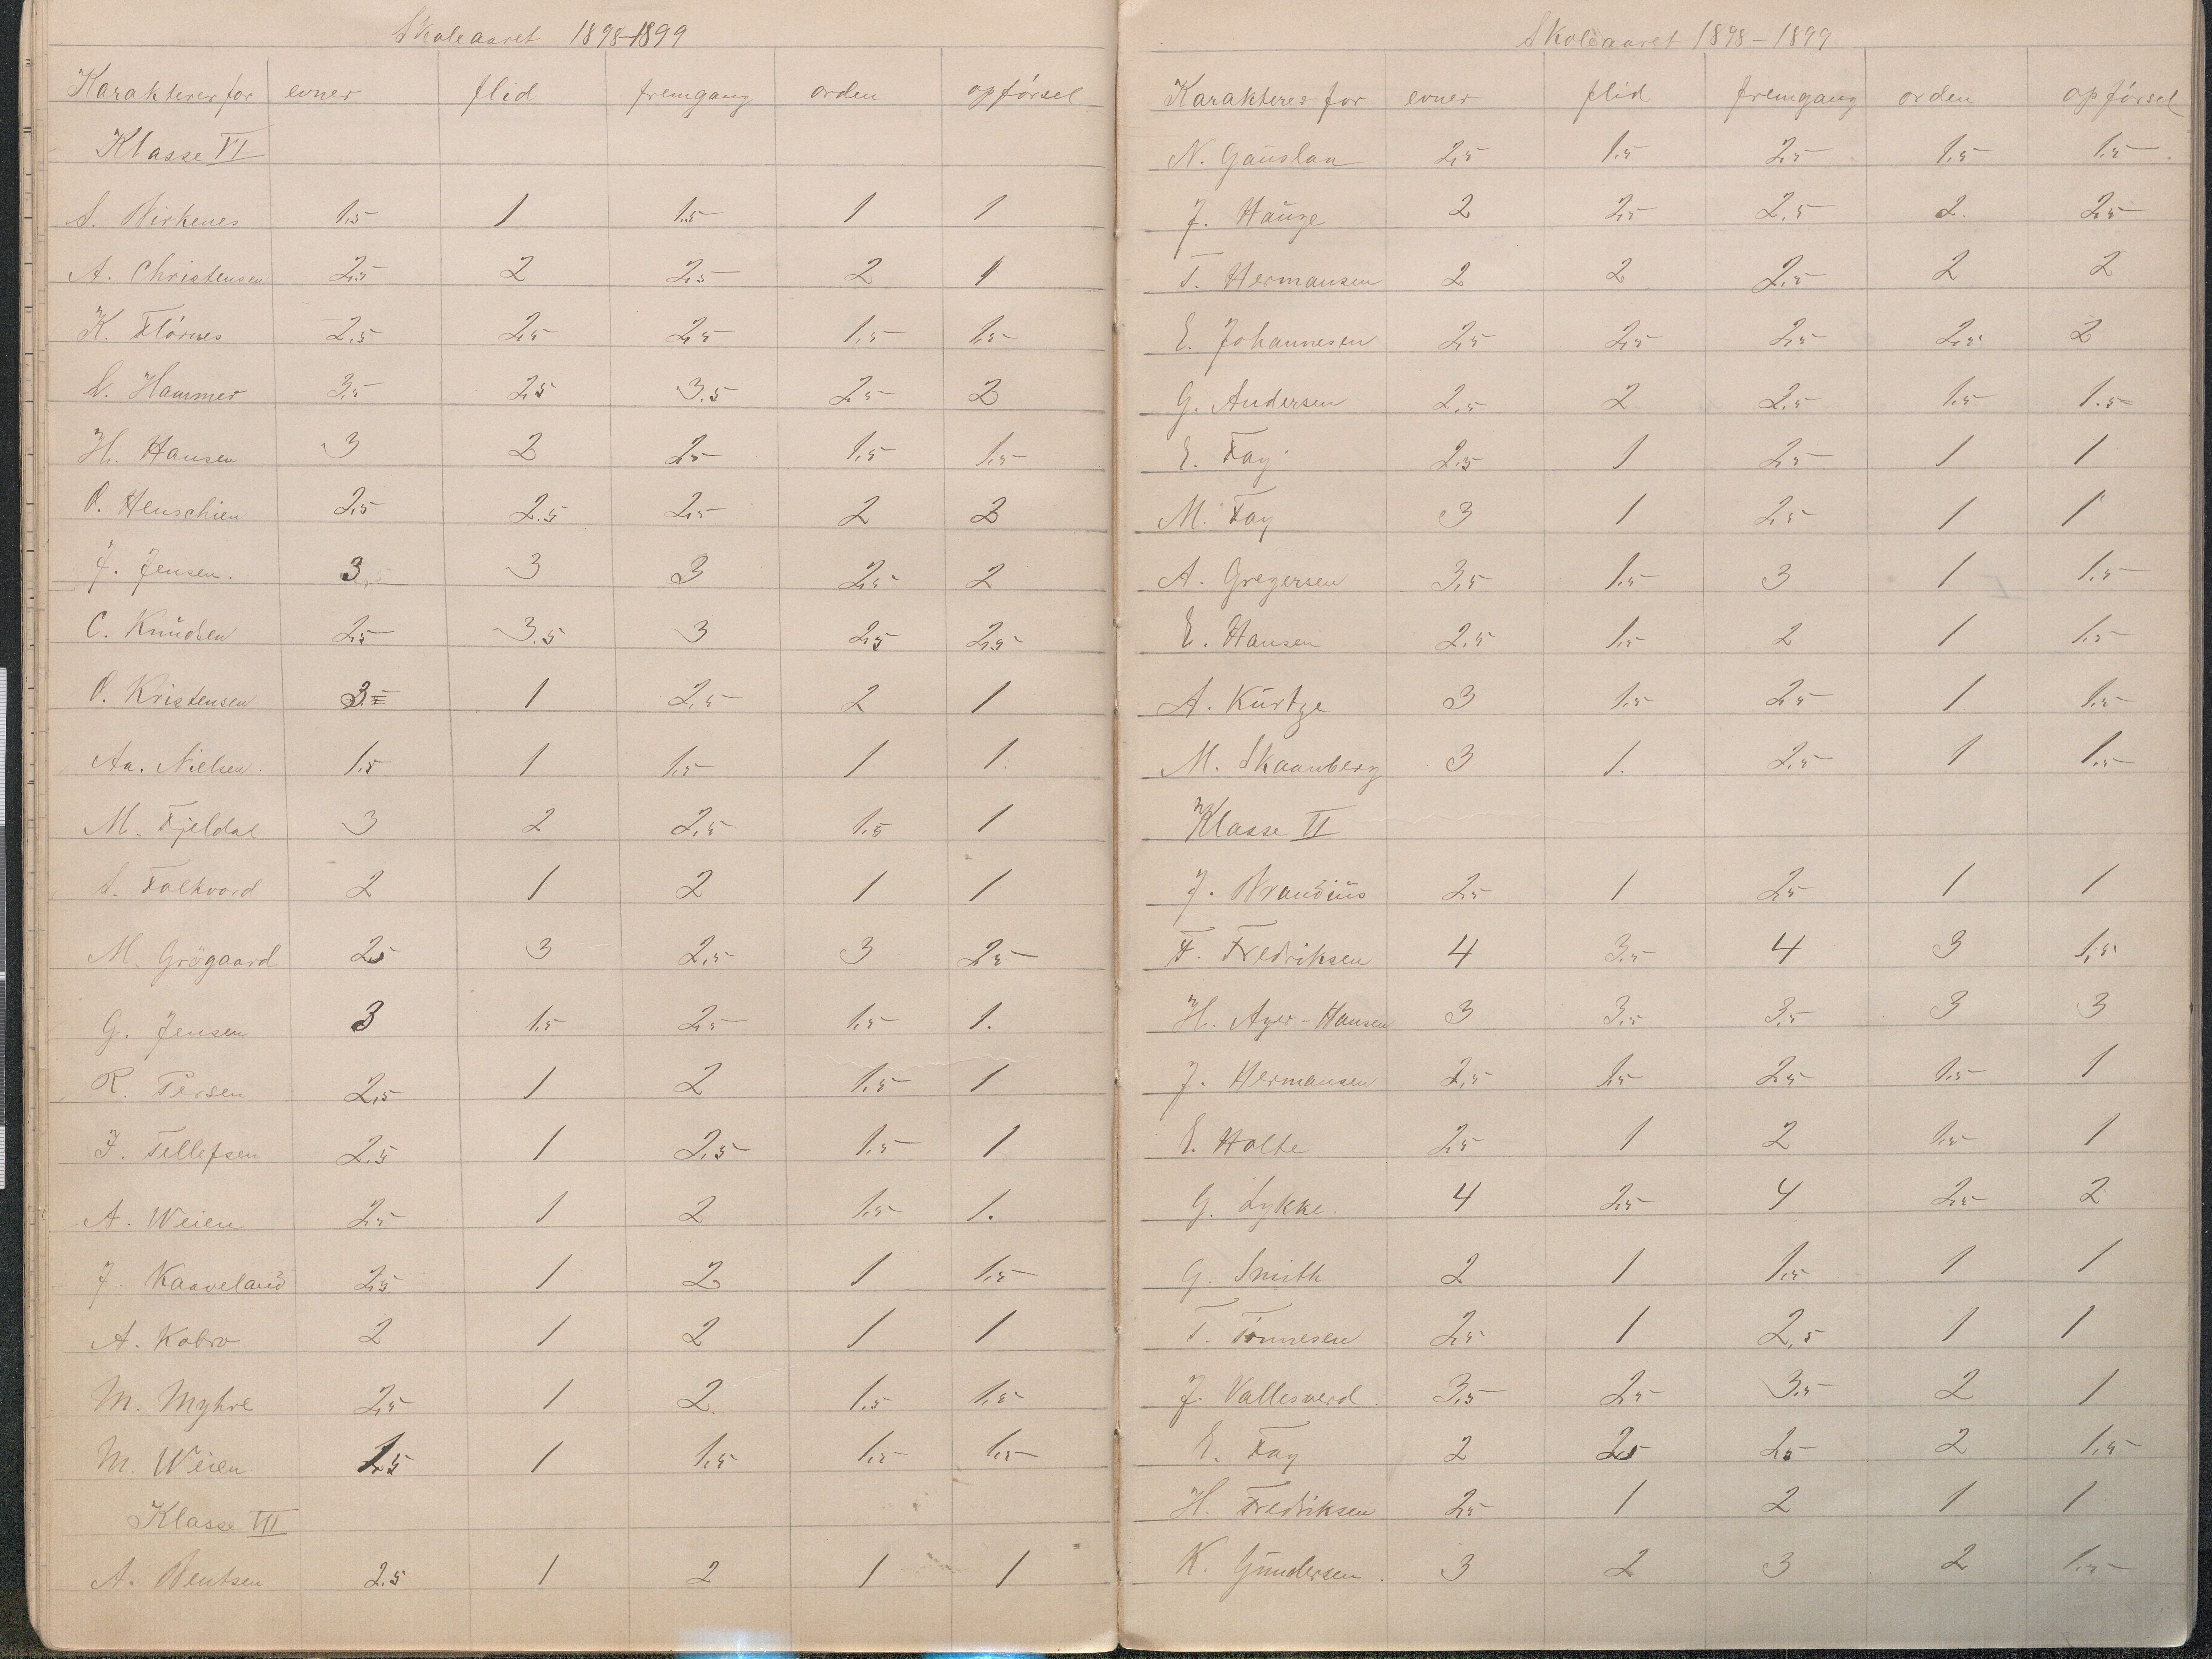 Skoleaaret 1898-1899
Karakterer for evner flid fremgang orden opførsel
Klasse VI
S. Birkenes 1.5 1 1.5 1 1
A. Christensen 2.5 2 2.5 2 1
K. Flörnes 2.5 2.5 2.5 1.5 1.5
N. Hammer 3.5 2.5 3.5 2.5 2
H. Hansen 3 2 2.5 1.5 1.5
O. Henschien 2.5 2.5 2.5 2 2
J. Jensen. 3 3 3 2.5 2
C. Knudsen 2.5 3.5 3 2.5 2.5
O. Kristensen 3 1 2.5 2 1
Aa. Nielsen. 1.5 1 1.5 1 1
M. Fjeldal 3 2 2.5 1.5 1
S. Falkvard 2 1 2 1 1
M. Grögaard 2.5 3 2.5 3 2.5
G. Jensen 3 1.5 2.5 1.5 1.
R. Persen 2.5 1 2 1.5 1
F. Tellefsen 2.5 1 2.5 1.5 1
A. Weien 2.5 1 2 1.5 1.
J. Kaaveland 2.5 1 2 1 1.5
A. Kobro 2 1 2 1 1
M. Myhre 2.5 1 2. 1.5 1.5
M. Weien 1.5 1 1.5 1.5 1.5
Klasse VII
A. Bentsen 2.5 1 2 1 1
Skoleaaret 1898-1899
Karakterer for evner flid fremgang orden opførsel
N. Gauslaa 2.5 1.5 2.5 1.5 1.5
J. Hauge 2 2.5 2.5 2. 2.5
T. Hermansen 2 2 2.5 2 2
E. Johannesen 2.5 2.5 2.5 2.5 2
G. Andersen 2.5 2 2.5 1.5 1.5
E. Fay 2.5 1 2.5 1 1
M. Fay 3 1 2.5 1 1
A. Gregersen 3.5 1.5 3 1 1.5
E. Hansen 2.5 1.5 2 1 1.5
A. Kurtze 3 1.5 2.5 1 1.5
M. Skaanberg 3 1. 2.5 1 1.5
Klasse VI
J. Brandius 2.5 1 2.5 1 1
F. Fredriksen 4 3.5 4 3 1.5
H. Ayer-Hansen 3 3.5 3.5 3 3
J. Hermansen 2.5 1.5 2.5 1.5 1
E. Holte 2.5 1 2 1.5 1
G. Lykke. 4 2.5 4 2.5 2
G. Smith 2 1 1.5 1 1
T. Tönnesen 2.5 1 2.5 1 1
J. Vallesverd 3.5 2.5 3.5 2 1
E. Fay 2 2.5 2.5 2 1.5
H. Fredriksen 2.5 1 2 1 1
K. Gundersen. 3 2 3 2 1.5